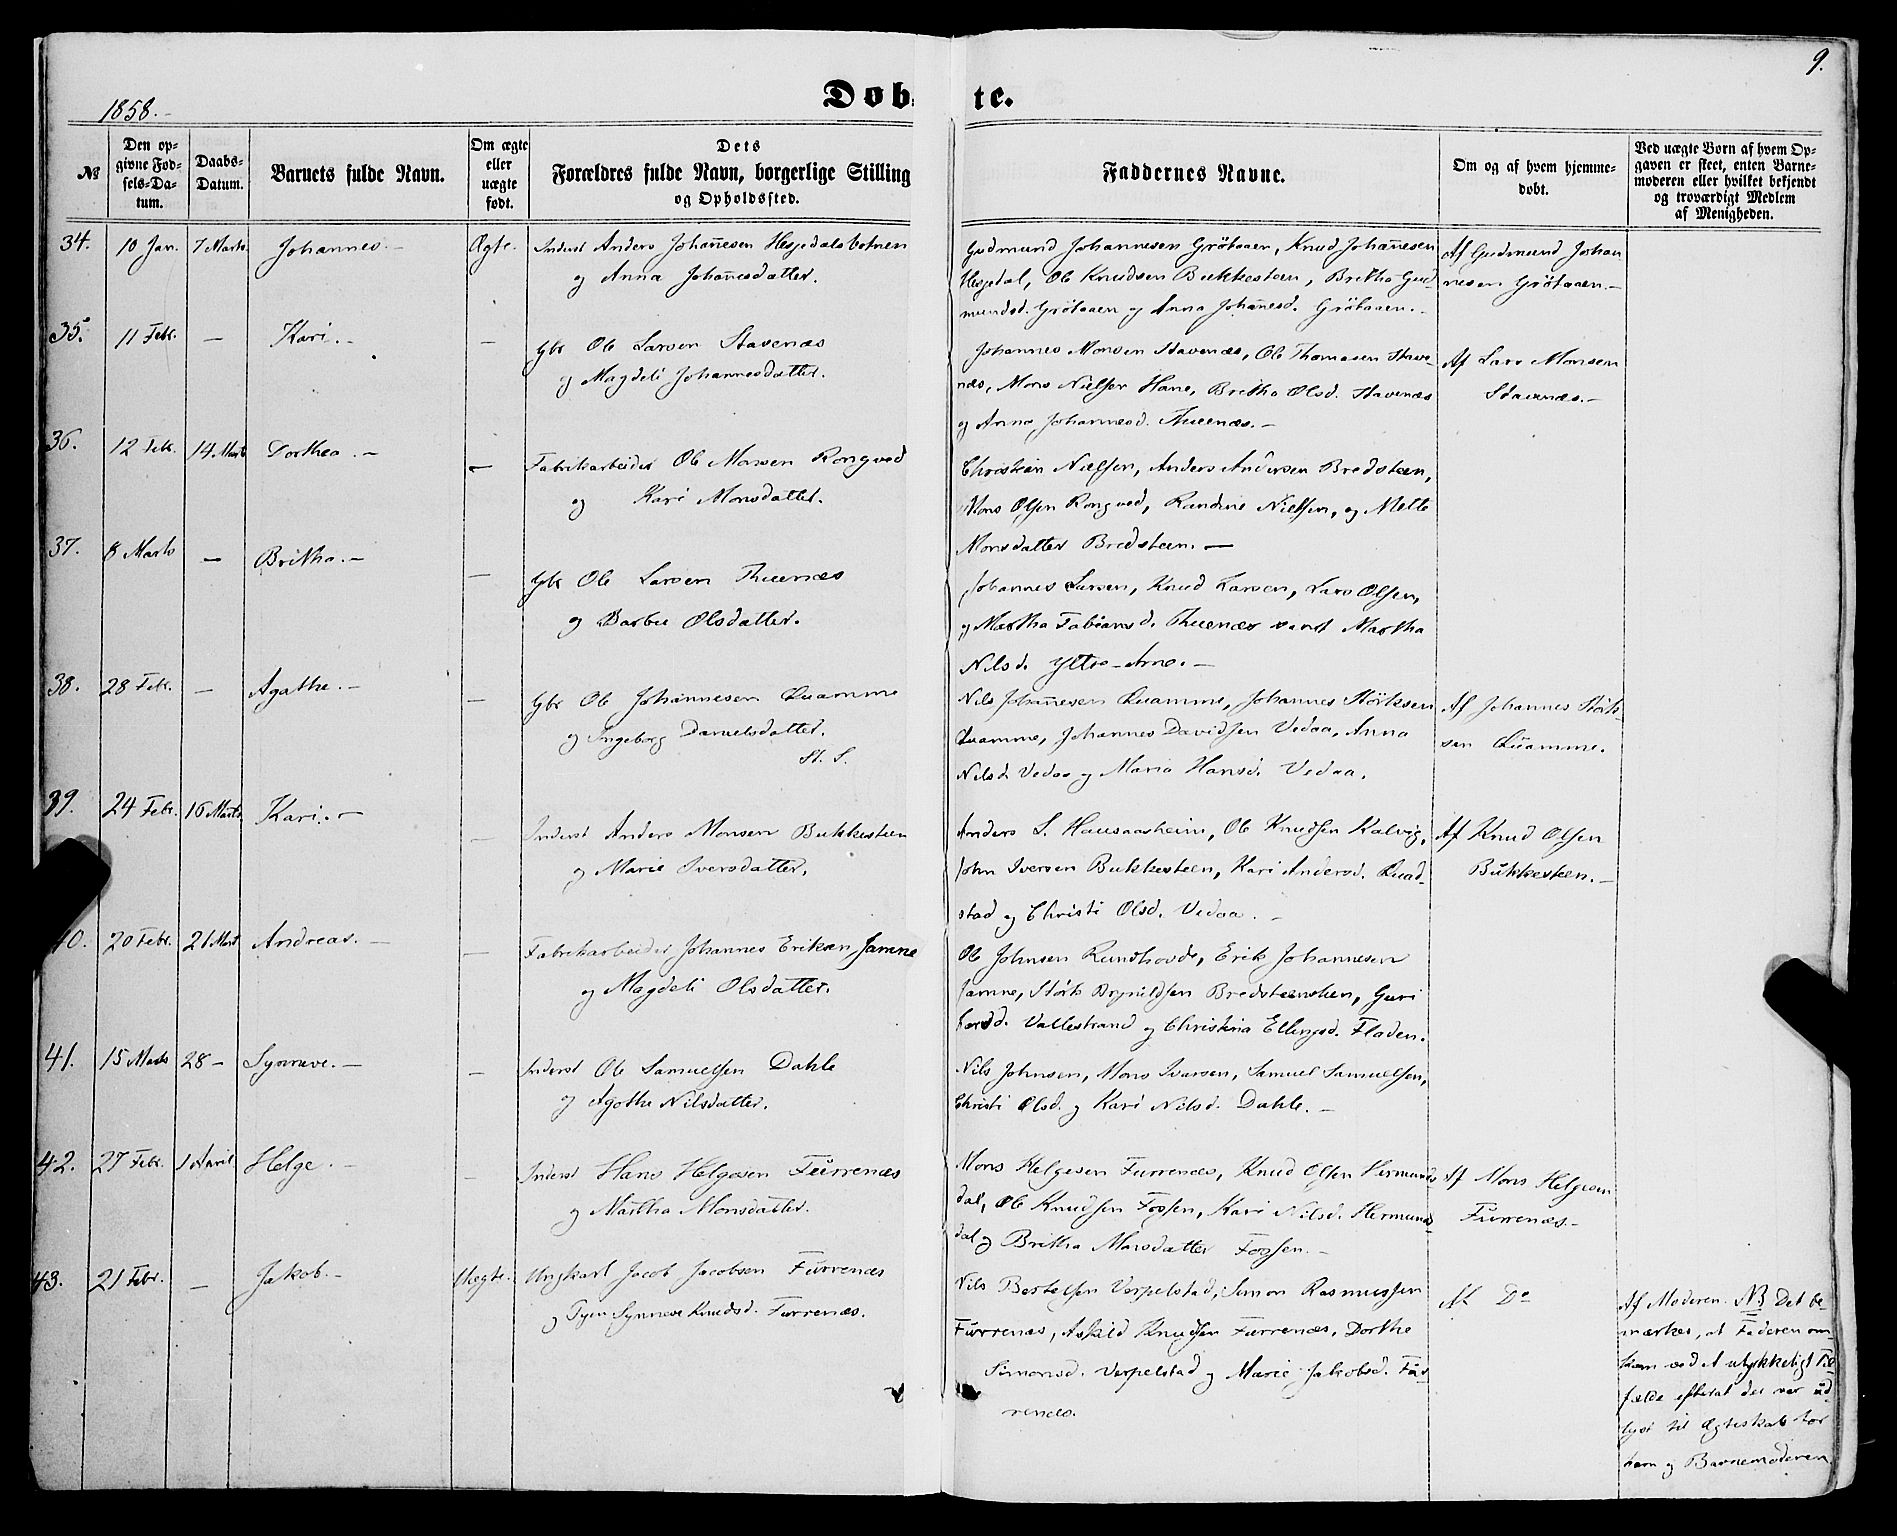 9.
1858.-
Døb- te.
№
Den opgivne Fødsels-Datum.
Daabs-Datum.
Barnets fulde Navn.
Om ægte eller uægte født.
Dets
Forældres fulde Navn, borgerlige Stilling
og Opholdssted.
Faddernes Navne.
Om og af hvem hjemmedøbt.
Ved uægte Børn af hvem Opgaven er skeet, enten Barnemoderen eller hvilket bekjendt og troværdigt Medlem af Menigheden.
34. 10 Jan. 7 Marts. Johannes.- Ægte.
Inderst Anders Johannesen Hesjedalsbotnen
og Anna Johannesdatter.
Gudmund Johannesen Grötaaen, Knud Johannesen
Hesjedal, Ole Knudsen Bukkesteen, Britha Gud-
mundsd. Grötaaen og Anna Johannesd. Grötaaen.-
Af Gudmund Johan
nesen Grötaaen.-
35. 11 Febr. - Kari.- -
Gbr Ole Larsen Stavenæs
og Magdeli Johannesdatter.
Johannes Monsen Stavenæs, Ole Thomasen Stave-
næs, Mons Nielsen Hane, Britha Olsd. Stavenæs
og Anna Johannesd. Thuenæs.-
Af Lars Monsen
Stavenæs.-
36. 12 Febr. 14 Marts Dorthea.- -
Fabrikarbeider Ole Monsen Rongved
og Kari Monsdatter.
Christian Nielsen, Anders Andersen Bredsteen,
Mons Olsen Rongved, Randine Nielsen, og Mette
Monsdatter Bredsteen.-
37. 8 Marts - Britha.- -
Gbr Ole Larsen Thuenæs
og Barbro Olsdatter.
Johannes Larsen, Knud Larsen, Lars Olsen,
og Martha Fabiansd. Thuenæs samt Martha
Nilsd. Yttre-Arne.-
38. 28 Febr. - Agathe.- -
Gbr Ole Johannesen Quamme
og Ingeborg Danielsdatter.
St. S.
Nils Johannesen Quamme, Johannes Störksen
Quamme, Johannes Davidsen Vedaa, Anna
Nilsd. Vedaa og Maria Hansd. Vedaa.
Af Johannes Störk-
sen Quamme.
39. 24 Febr. 16 Marts. Kari.- -
Inderst Anders Monsen Bukkesteen
og Marie Iversdatter.
Anders S. Hausaasheim, Ole Knudsen Kalvig,
John Iversen Bukkesteen, Kari Andersd. Quad-
stad og Christi Olsd. Vedaa.-
Af Knud Olsen
Bukkesteen.-
40. 20 Febr. 21 Marts Andreas.- -
Fabrikarbeider Johannes Eriksen Jamne
og Magdeli Olsdatter.
Ole Johnsen Rundhovde, Erik Johannesen
Jamne, Störk Brynildsen Bredsteensken, Guri
Larsd. Vallestrand og Christina Ellingsd. Fladen.
41. 15 Marts 28 - Synneve.- -
Inderst Ole Samuelsen Dahle
og Agathe Nilsdatter.
Nils Johnsen, Mons Ivarsen, Samuel Samuelsen,
Christi Olsd. og Kari Nilsd. Dahle.-
42. 27 Febr. 1 April Helge.- -
Inderst Hans Helgesen Furrenæs
og Martha Monsdatter.
Mons Helgesen Furrenæs, Knud Olsen Hermunds
dal, Ole Knudsen Fossen, Kari Nilsd. Hermunds
dal og Britha Monsdatter Fossen.-
Af Mons Helgesen
Furrenæs-
43. 21 Febr. - Jakob.- Uægte.
Ungkarl Jacob Jacobsen Furrenæs
og Pigen Synneve Knudsd. Furrenæs.
Nils Bertelsen Verpelstad, Simon Rasmussen
Furrenæs, Askild Knudsen Furrenæs, Dorthe
Simonsd. Verpelstad og Marie Jakobsd. Fur-
renæs.
Af Do
Af Moderen. NB Det be-
mærkes, at Faderen om-
kom ved et ulykkeligt Til-
fælde efterat der var ud-
lyst til Ægteskab for
ham og Barnemoderen